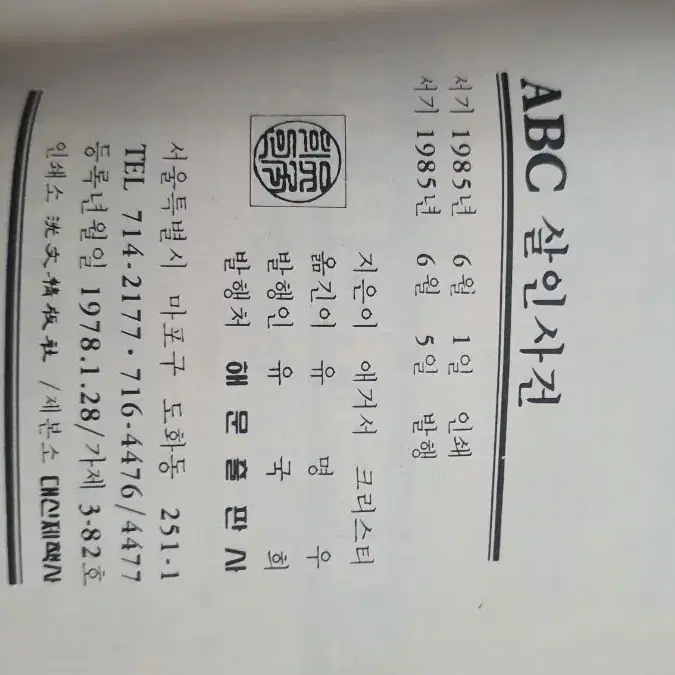 ABC 살인사건
서기 1985년 6월 1일 인쇄
서기 1985년 6월 5일 발행
지은이 애거서 크리스티
옮긴이 유명우
발행인 유국희
발행처 해문출판사
서울특별시 마포구 도화동 251-1
TEL 714-2177·716-4476/4477
등록년월일 1978.1.28/가제 3-82호
인쇄소 洪文精版社 /제본소 대신제책사